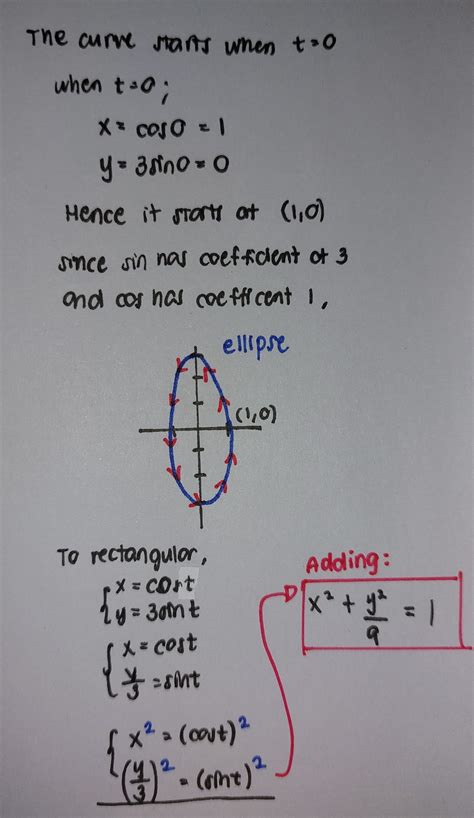 The curve starts when t=0
when t=0;
x= cos0 = 1
y= 3sin0 = 0
Hence it starts at (1,0)
since sin has coefficient of 3
and cos has coefficent 1,
ellipse
(1,0)
To rectangular,
{x = cost
y = 3sin t
{x = cost
y/3 = sint
{x² = (cost)²
(y/3)² = (sint)²
Adding:
x² + y²/9 = 1